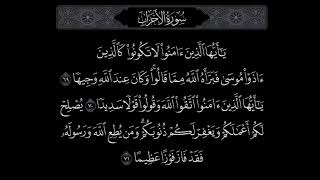 سُورَةُ الأَحْزَابِ
يَٰٓأَيُّهَا ٱلَّذِينَ ءَامَنُوا۟ لَا تَكُونُوا۟ كَٱلَّذِينَ
ءَاذَوْا۟ مُوسَىٰ فَبَرَّأَهُ ٱللَّهُ مِمَّا قَالُوا۟ ۚ وَكَانَ عِندَ ٱللَّهِ وَجِيهًا ٦٩
يَٰٓأَيُّهَا ٱلَّذِينَ ءَامَنُوا۟ ٱتَّقُوا۟ ٱللَّهَ وَقُولُوا۟ قَوْلًا سَدِيدًا ٧٠ يُصْلِحْ
لَكُمْ أَعْمَٰلَكُمْ وَيَغْفِرْ لَكُمْ ذُنُوبَكُمْ ۗ وَمَن يُطِعِ ٱللَّهَ وَرَسُولَهُۥ
فَقَدْ فَازَ فَوْزًا عَظِيمًا ٧١